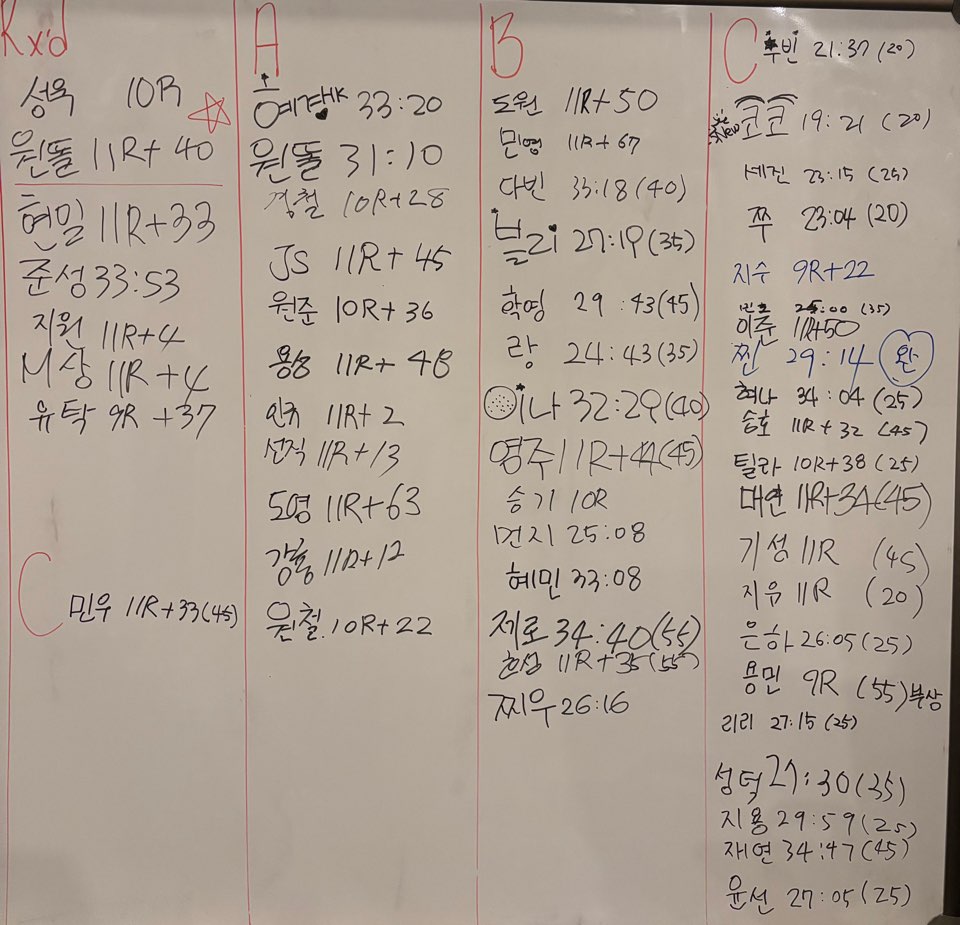 Rx'd
성욱 10R
원똘 11R+40
현밀 11R+33
준성 33:53
지원 11R+4
M상 11R+4
유탁 9R+37
C
민우 11R+33(45)
A
혜경HK 33:20
원똘 31:10
경철 10R+28
JS 11R+45
원준 10R+36
용성 11R+48
11R+2
선직 11R+13
도영 11R+63
강훈 11R+12
원철 10R+22
B
도원 11R+50
민영 11R+67
다빈 33:18(40)
블리 27:19(35)
학영 29:43(45)
랑 24:43(35)
이나 32:29(40)
영주 11R+44(45)
승기 10R
먼지 25:08
혜민 33:08
제로 34:40(55)
11R+35(55)
찌우 26:16
C
수빈 21:37(20)
New 코코 19:21 (20)
세진 23:15 (25)
쭈 23:04(20)
지수 9R+22
25:00 (35)
이준 11R+50
찐 29:14 완
혜나 34:04(25)
승호 11R+32 (45)
틸라 10R+38(25)
대연 11R+34(45)
기성 11R (45)
지윰 11R (20)
은하 26:05(25)
용민 9R (55)부상
리리 27:15(25)
성덕 27:30(35)
지용 29:59(25)
재연 34:47(45)
윤선 27:05(25)